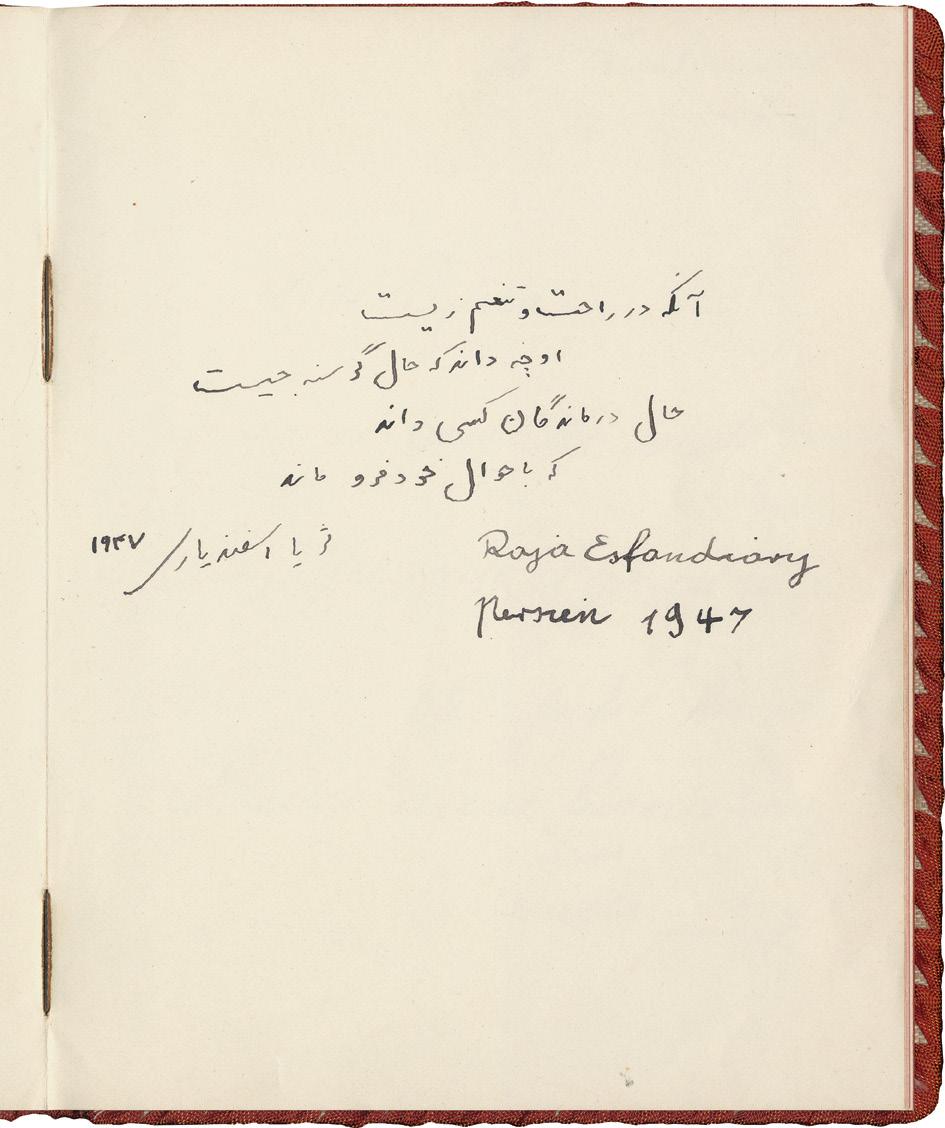 آنکه در راحت و تنعم زیست
او چه داند که حال گرسنه چیست
حال درماندگان کسی داند
که باحوال خود فرو ماند
ثریا اسفندیاری ۱۹۴۷
Raja Esfandiary
Persien 1947